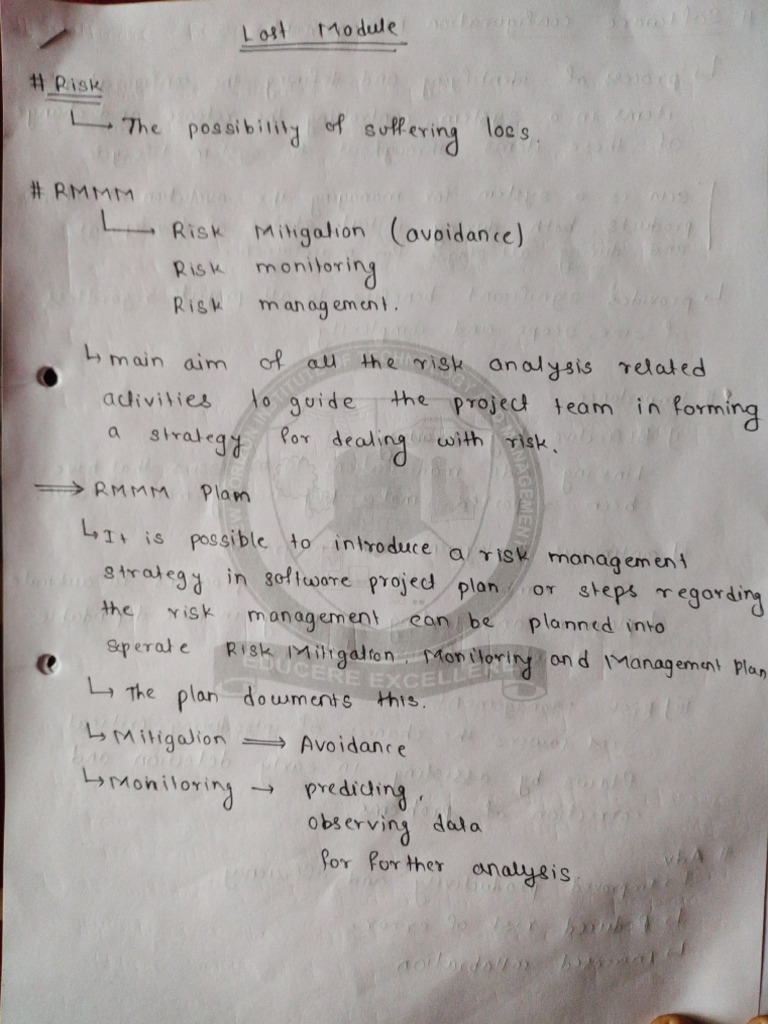 Last Module
# Risk
↳ The possibility of suffering loss.
# RMMM
↳ Risk Mitigation (avoidance)
Risk monitoring
Risk management.
↳ main aim of all the risk analysis related
activities to guide the project team in forming
a strategy for dealing with risk.
⇒ RMMM Plan
↳ It is possible to introduce a risk management
strategy in software project plan or steps regarding
the risk management can be planned into
seperate Risk Mitigation, Monitoring and Management Plan
EDUCERE EXCELLENT
↳ The plan documents this.
↳ Mitigation ⇒ Avoidance
↳ Monitoring → predicting,
observing data
for forther analysis.